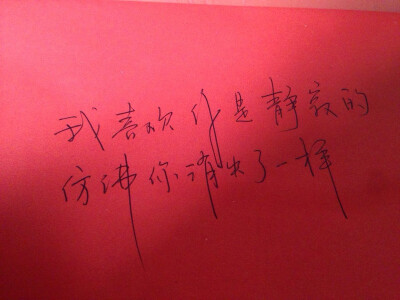 我喜欢你是静寂的
仿佛你消失了一样